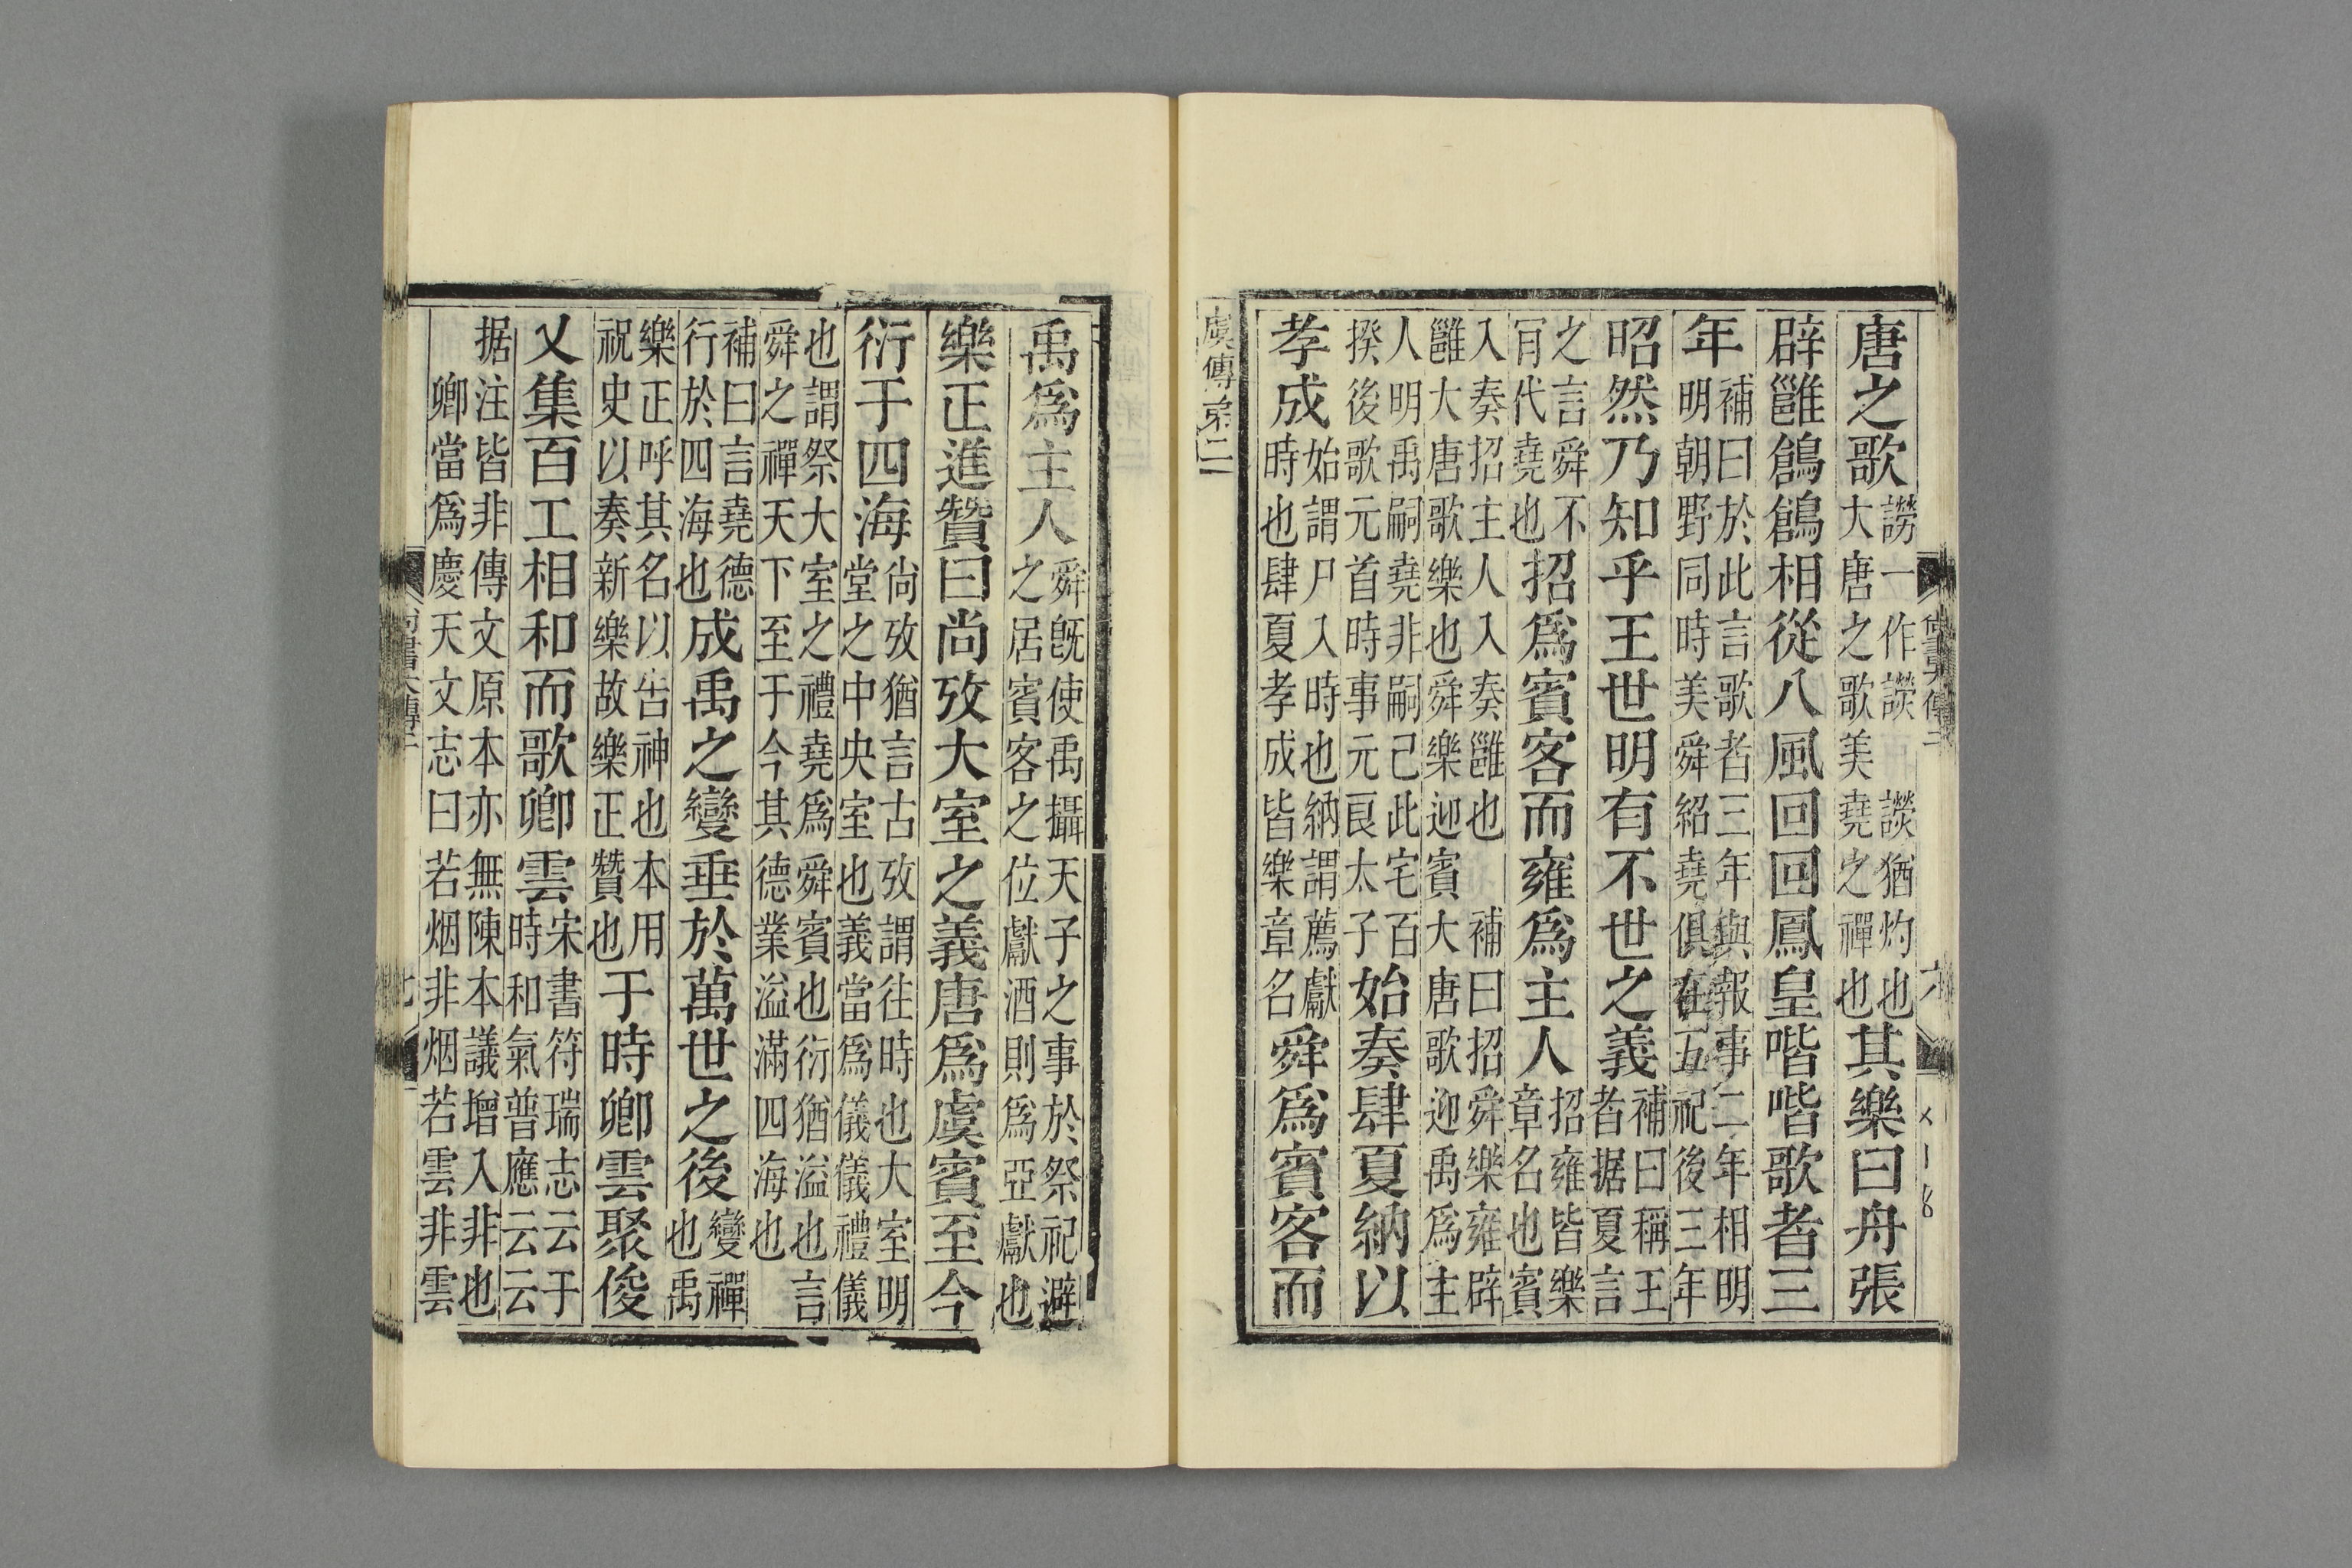 唐之歌謗一作讃　讃猶灼也大唐之歌美堯之禪也其樂曰舟張
辟雝鶬鶬相從八風回回鳳皇喈喈歌者三
年補曰於此言歌者三年與報事二年相明明朝野同時美舜紹堯俱在五祀後三年
昭然乃知乎王世明有不世之義補曰稱王者据夏言
之言舜不㒺代堯也招爲賓客而雍爲主人招雍皆樂章名也賓
入奏招主人入奏雝也　補曰招舜樂雍辟雝大唐歌樂也舜樂迎賓　大唐歌迎禹爲主
人明禹嗣堯非嗣己此宅百揆後歌元首時事元良太子始奏肆夏納以
孝成始謂尸入時也納謂薦獻時也肆夏孝成皆樂章名舜爲賓客而
虞傳弟二
禹爲主人舜旣使禹攝天子之事於祭祀避之居賓客之位獻酒則爲亞獻也
樂正進贊曰尚攷大室之義唐爲虞賓至今
衍于四海尚攷猶言古攷謂往時也大室明堂之中央室也義當爲儀儀禮儀
也謂祭大室之禮堯爲舜賓也衍猶溢也言舜之禪天下至于今其德業溢滿四海也
補曰言堯德行於四海也成禹之變垂於萬世之後變禪也禹
樂正呼其名以告神也本用祝史以奏新樂故樂正贊也于時卿雲聚俊
乂集百工相和而歌卿雲宋書符瑞志云于時和氣普應云云
据注皆非傳文原本亦無陳本議增入非也卿當爲慶天文志曰若烟非烟若雲非雲